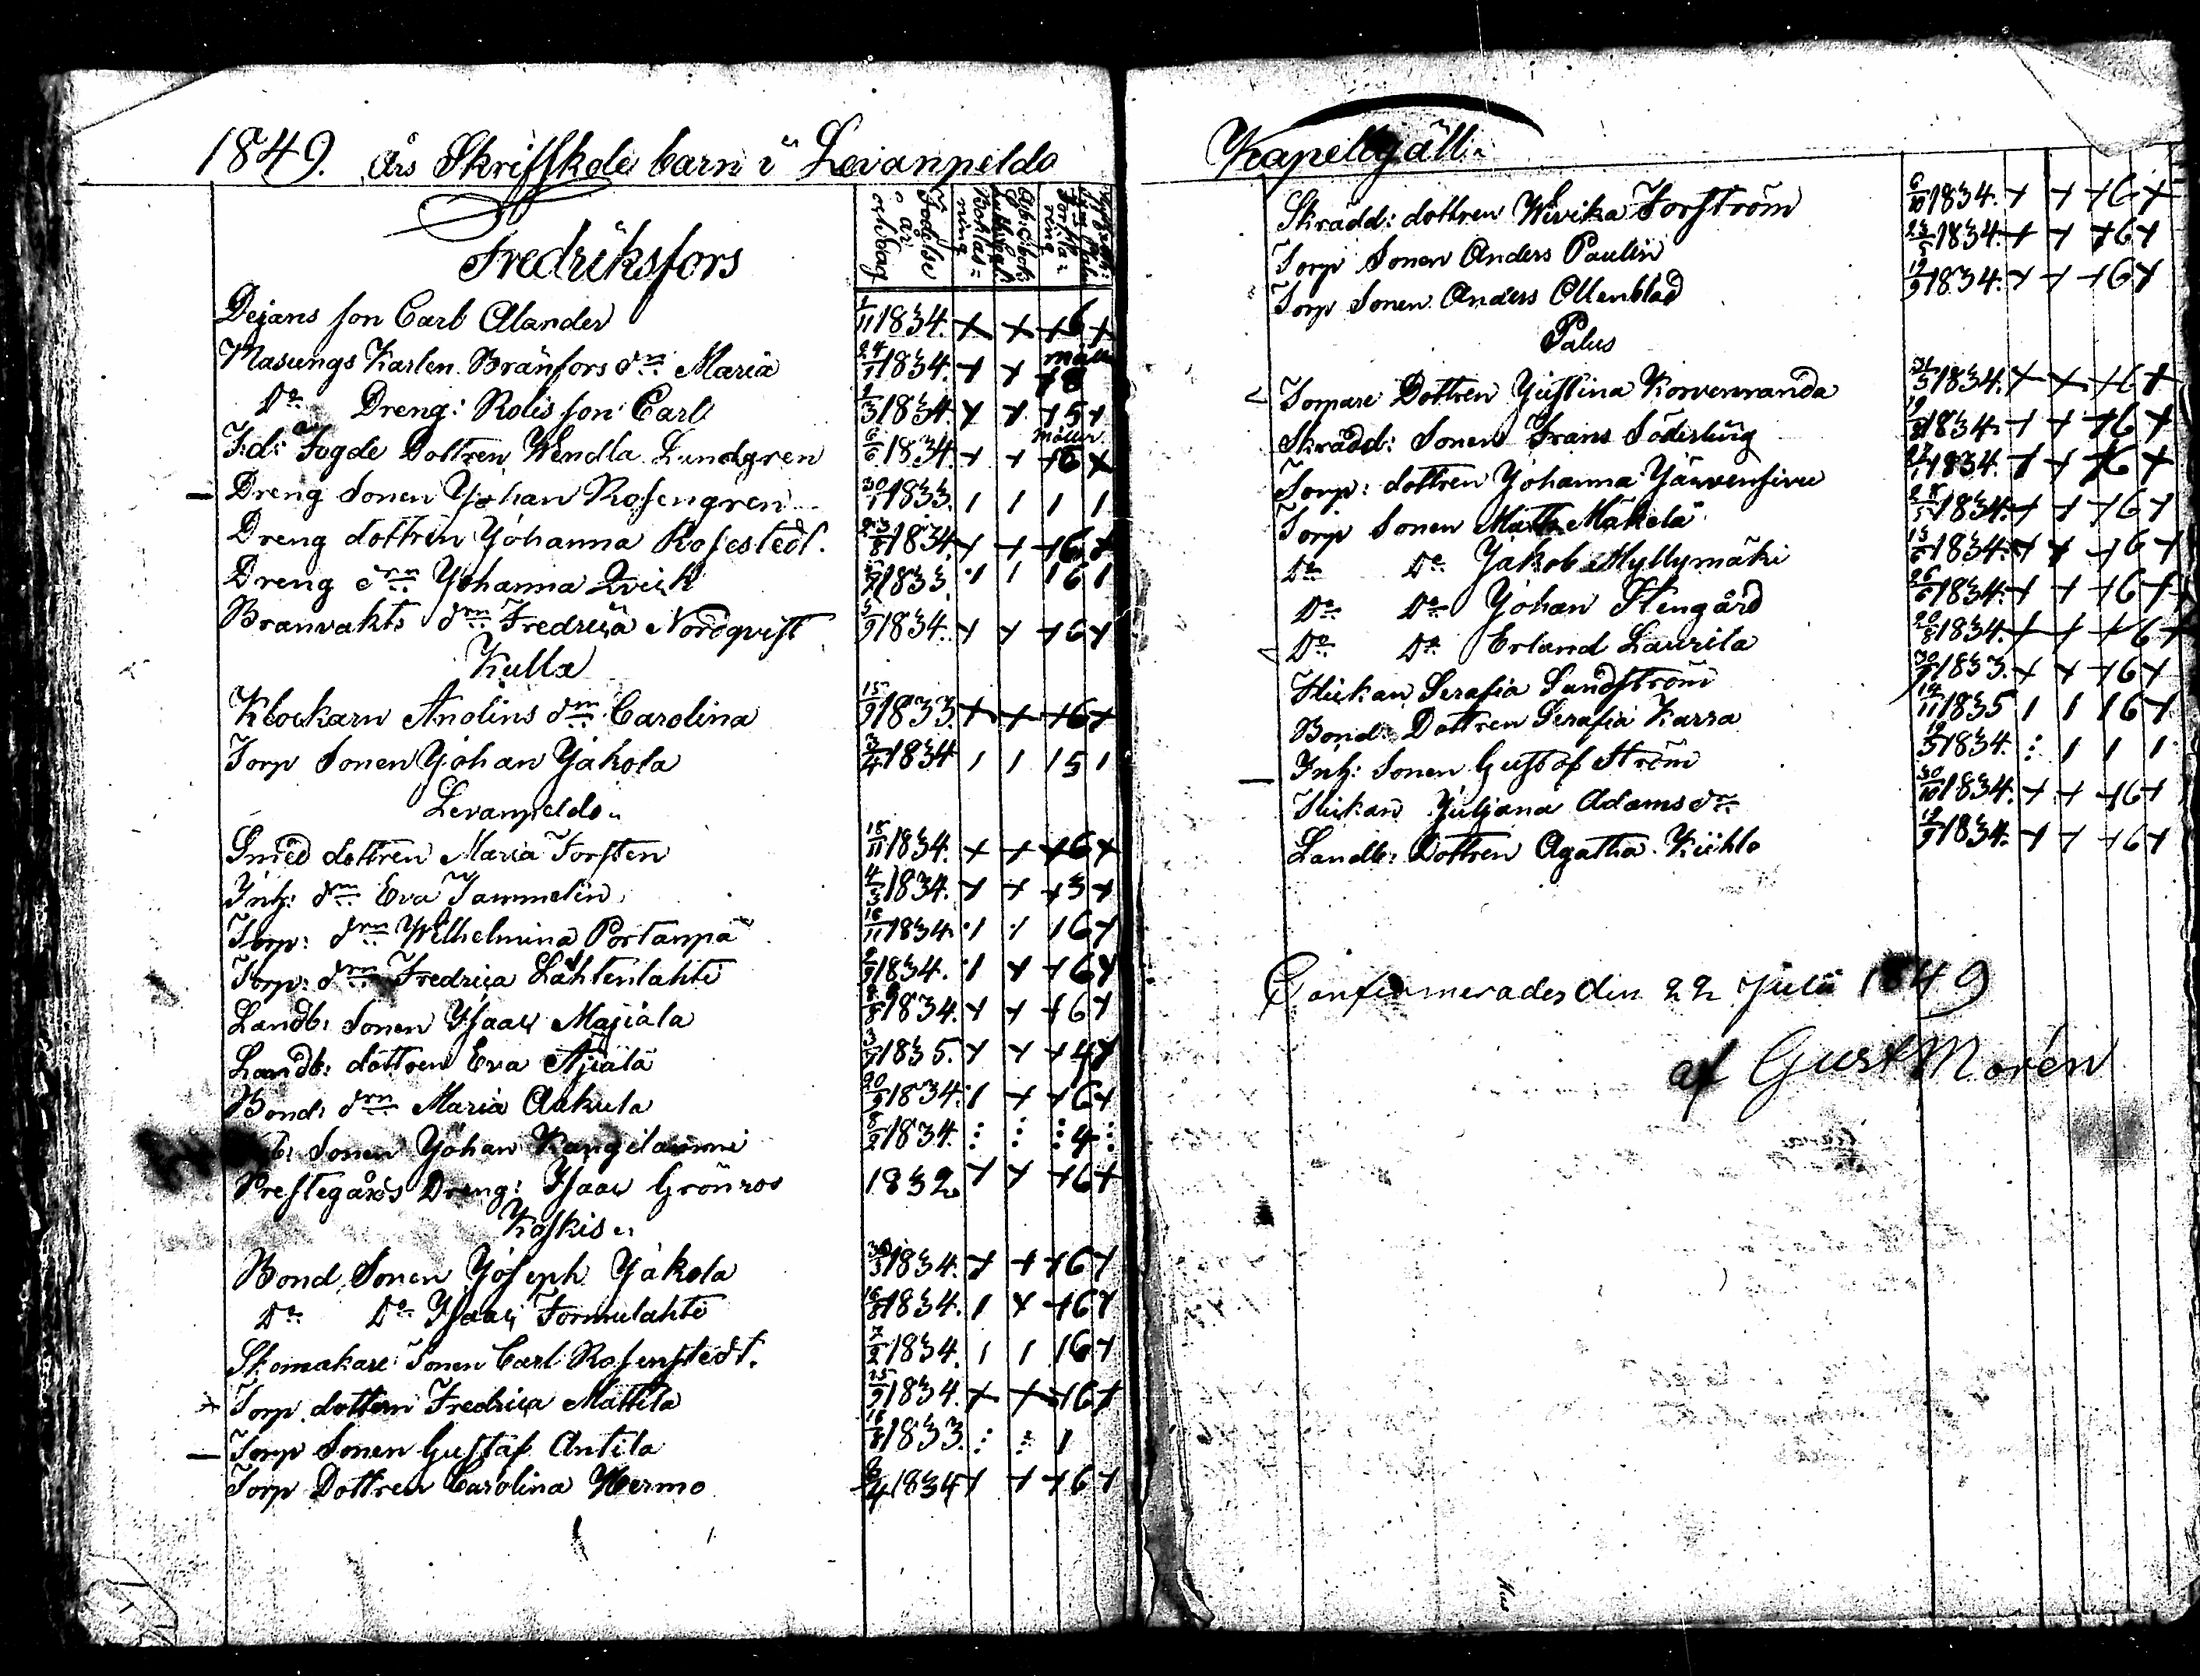 1849. års Skriftskole barn i Levanpeldo
Födelse år och dag
Fredriksfors
Dejans son Carl Alander 1/11 1834. + + + 6 +
Masungs Karlen Bränfors drn Maria 24/1 1834. + + +
Do Dreng: Rolis son Carl 2/3 1834. + + + 5 +
F.d: Fogde Dottren Wendla Lundgren 6/6 1834. + + + 6 +
— Dreng Sonen Johan Rosengren 30/1 1833. 1 1 1 1
Dreng dottren Johanna Rosestedt. 23/8 1834. + + + 6 +
Dreng drn Johanna Qvick 1833. 1 1 1 6 1
Branvakts drn Fredrica Nordqvist 5/9 1834. + + + 6 +
Kulla
Klockarn Anolins drn Carolina 15/9 1833. + + + 6 +
Torp Sonen Johan Jakola 3/4 1834 1 1 1 5 1
Levanpeldo
Smed dottren Maria Forsten 18/11 1834. + + + 6 +
Inh: drn Eva Tammelin 4/3 1834. + + + 3 +
Torp: drn Wilhelmina Portanpä 16/11 1834. 1 1 1 6 +
Torp: drn Fredrica Lahtenlahti 2/9 1834. 1 + + 6 +
Landb: Sonen Isaac Majiala 1834. + + + 6 +
Landb: dottren Eva Ajiälä 1835. + + + 4 +
Bond: drn Maria Aakula 20/5 1834. 1 + + 6 +
Sonen Johan Kangilaimmi 8/2 1834. : : : 4 :
Prestegårds Dreng: Isaac Grönros 1832. + + + 6 +
Koskis
Bond Sonen Joseph Jakola 30/3 1834. + + + 6 +
Do Do Isaac Tormulahti 16/8 1834. 1 + + 6 +
Skomakare Sonen Carl Rosenstedt. 7/2 1834. 1 1 1 6 +
+ Torp dottern Fredrica Mattila 25/9 1834. + + + 6 +
— Torp Sonen Gustaf Antila 16/8 1833. : : 1
Torp Dottren Carolina Wermo 1834 + + + 6 +
Kapellgäll
Skradd: dottren Wivika Forström 6/10 1834. + + + 6 +
Torp Sonen Anders Paulin 23/5 1834. + + + 6 +
Torp Sonen Anders Ollenblad 19/9 1834. + + + 6 +
Palus
Torpare Dottren Justina Korvenranda 31/3 1834. + + + 6 +
Skrädd: Sonen Frans Söderling 1834. + + + 6 +
Torp: dottren Johanna Järvensivu 1834. + + + 6 +
Torp Sonen Matts Mäkelä 1834. + + + 6 +
Do Do Jakob Myllymäki 13/6 1834. + + + 6 +
Do Do Johan Stengård 26/6 1834. + + + 6 +
Do Do Erland Laurila 20/8 1834. + + + 6 +
Pickan Serafia Sundström 30/9 1833. + + + 6 +
Bond: Dottren Serafia Karra 14/11 1835 1 1 1 6 +
— Inh: Sonen Gustaf Ström 1834. : 1 1 1
Pickan Juljana Adams dr 30/10 1834. + + + 6 +
Landb: Dottren Agatha Kiihlo 12/9 1834. + + + 6 +
Confirmerades den 22 Julii 1849
af Gust Morén